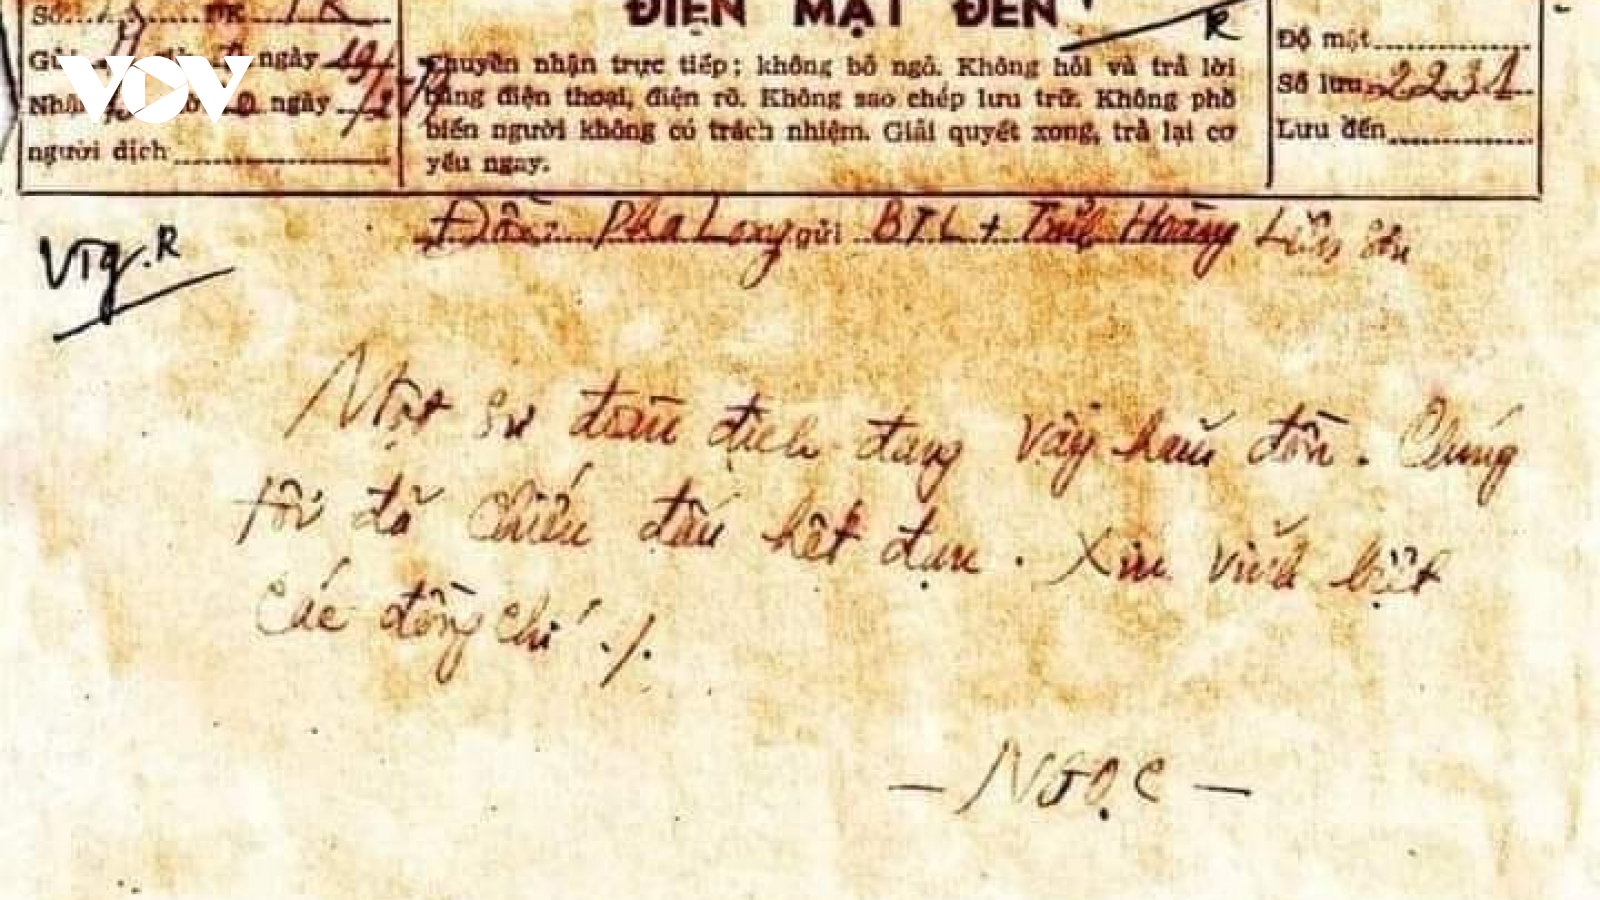 Số ĐK
ĐIỆN MẬT ĐẾN
R
Độ mật
Gửi ngày 19/2
VOV
Chuyền nhận trực tiếp; không bỏ ngỏ. Không hỏi và trả lời
Số lưu 2231
Nhận ngày
bằng điện thoại, điện rõ. Không sao chép lưu trữ. Không phổ
Lưu đến
biến người không có trách nhiệm. Giải quyết xong, trả lại cơ
người dịch
yếu ngay.
Đồn: Pha Long gửi BTL + Tỉnh Hoàng Liên Sơn
R
Một sư đoàn địch đang vây hãm đồn. Chúng
tôi đã chiến đấu hết đạn. Xin vĩnh biệt
các đồng chí ./.
- NGỌC -